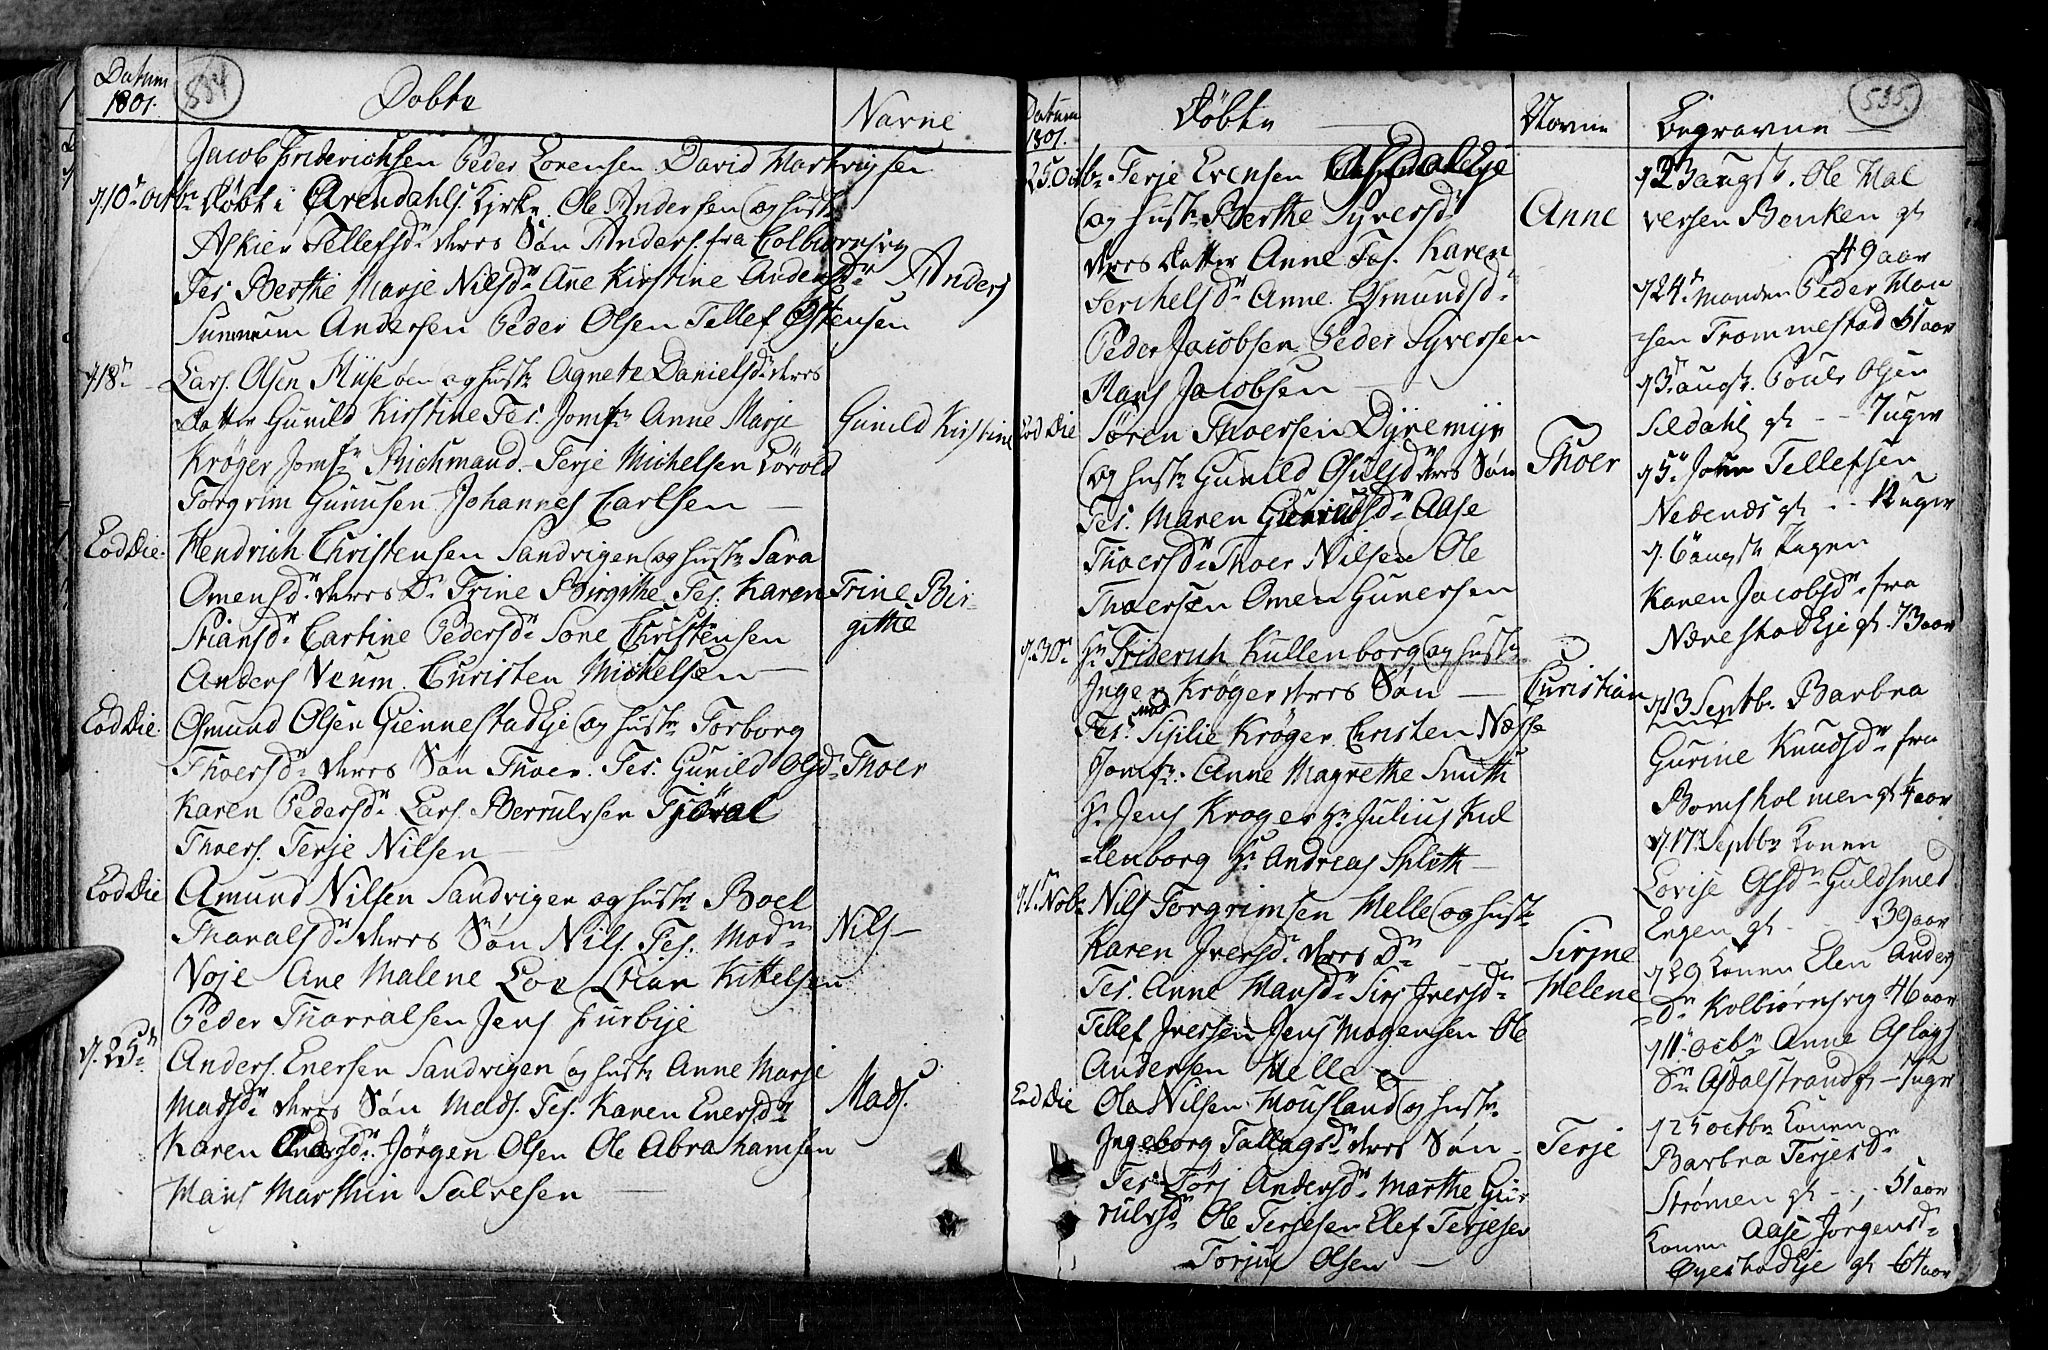 Datum
1801.
534
Døbte
Navne
Jacob Friderichsen Peder Lorensen David Martvigsen
d. 10de octbr Døbt i Arendahls Kirke Ole Andersen og hustr
Askier Tellefsdr deres Søn Anders fra Colbiørnsvig
Tes. Berthe Marje Nilsdr Ane Kirstine Andersdr
Anders
Andersen Peder Olsen Tellef Østensen
d. 18de Lars Olsen og hustr Agnete Danielsdr deres
datter Gunild Kirstine Tes. Jomfr Anne Marje
Gunild Kirstine
Krøger Jomfr Richmand Terje Michelsen Lövold
Torgrim Gunusen Johannes Carlsen
Eod Die Hendrich Christensen Sandvigen og hustr Sara
Omensdr deres Dr Trine Birgithe Tes. Karen
Trine Bir-
githe
Stiansdr Cartine Pedersdr Sone Christensen
Anders Veum Christen Michelsen
Eod Die. Osmund Olsen Giennestad Eje og hustr Torborg
Thoersdr deres Søn Thoer. Tes. Gunild Olsdr
Thoer
Karen Pedersdr Lars Berrulvsen Tjöval
Thoers. Terje Nilsen
Eod Die Amund Nilsen Sandvigen og hustr Boel
Tharalsdr deres Søn Nils. Tes. Madm
Nils
Voje Ane Malene Loe Stian Kittelsen
Peder Tharralsen Jens Furbye
d. 25de Anders Enersen Sandvigen og hustr Anne Marje
Madsdr deres Søn Mads. Tes. Karen Enersdr
Mads.
Karen Jørgen Olsen Ole Abrahamsen
Hans Marthin Salvesen
Datum
1801.
Døbte
Navne
Begravne
535.
25 Octbr Terje Evensen Asdal Eje
og hustr Berthe Syversdr
Anne
deres datter Anne Tes. Karen
Terchelsdr Anne Osmundsdr
Peder Jacobsen Peder Syversen
Hans Jacobsen
Eod Die Søren Thoersen Dyremyr
og hustr Gunild Osulsdr deres Søn
Thoer
Tes. Maren Aase
Thoersdr Thoer Nilsen Ole
Thoersen Omen Gunersen
d. 30te Hr Friderich Kullenborg og hustr
Inger Krøger deres Søn
Christian
Tes. Mad Sisilie Krøger Christen Næsse
Jomfr. Anne Magrethe Smith
Hr Jens Krøger Hr Julius Kul
lenborg Hr Andreas Splith
d. 1. Nobr Nils Torgrimsen Helle og hustr
Karen Iversdr deres Dr
Sirjne
Helene
Tes. Anne Hansdr Sirj Iversdr
Tellef Iversen Jens Mogensen Ole
Andersen Helle
Eod Die Ole Nilsen Mousland og hustr
Ingeborg Tallagsdr deres Søn
Terje
Tes. Törj Andersdr Marthe Gur
rulvsdr Ole Terjesen Elef Terjesen
Torjus Olsen
d. 23 augst. Ole Hal
versen Benken gl.
49 aar
d. 24de Manden Peder Han
sen Trommestad 51 aar
d. 3 augst. Pouls Olsen
Seldahl gl. 7 uger
d. 5te John Tellefsen
Nedenæs gl. uger
d. 6te augst. Pigen
Karen Jacobsdr fra
Nærestad Eje gl. 73 aar
d. 13 Septbr Barbra
Gurine Knudsdr fra
Bomsholmen gl. 4 aar
d. 17 Septbr Konen
Lovise Olsdr Guldsmed
Engen gl. 39 aar
d. 29 Konen Elen Anders
Dr Kolbiørnsvig 46 aar
d. 11te octbr Anne Aslags
Dr Asdalstrand gl. 7 uger
d. 25 octbr Konen
Barbra Terjes Dr
Strømen gl. 51 aar
Konen Aase Jørgensdr
Øyestad Eje gl. 64 aar